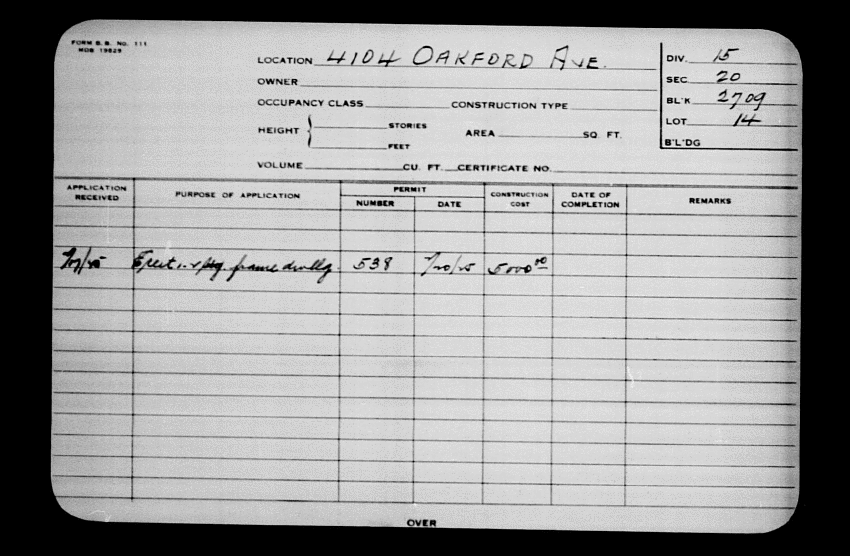 FORM B. B. No. 111
MDB 19829
LOCATION 4104 OAKFORD AVE.
OWNER
OCCUPANCY CLASS CONSTRUCTION TYPE
HEIGHT { STORIES
FEET
AREA SQ. FT.
VOLUME CU. FT. CERTIFICATE NO.
DIV. 15
SEC 20
BL'K 2709
LOT 14
B'L'DG
APPLICATION RECEIVED
PURPOSE OF APPLICATION
PERMIT
NUMBER DATE
CONSTRUCTION COST
DATE OF COMPLETION
REMARKS
Erect frame dwllg. 538 5000 00
OVER